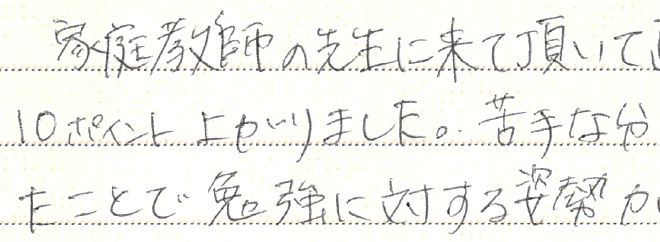 家庭教師の先生に来て頂いて
10ポイント上がりました。苦手な分
たことで勉強に対する姿勢が